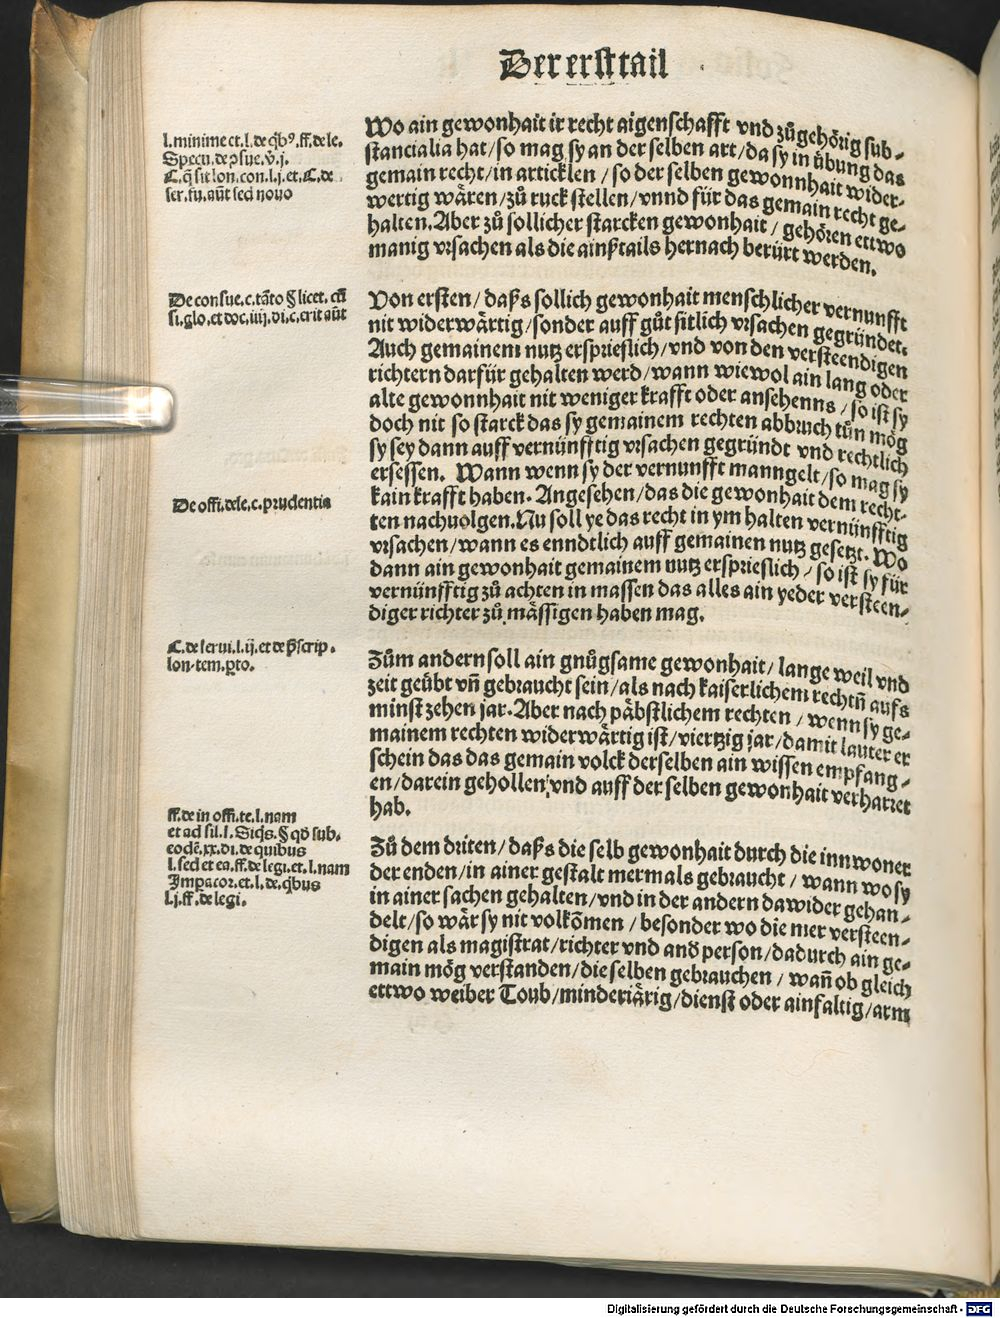 Der erst tail
l. minime et. l. de qͥbꝰ. ff. de le.
Specu. de ꝯsue. ꝟ. j.
C. q̄ sit lon. con. l. j. et. C. de
ser. fu. aūt sed nouo
Wo ain gewonhait ir recht aigenschafft vnd zůgehörig sub-
stancialia hat/so mag sy an der selben art/da sy in übung das
gemain recht/in articklen/so der selben gewonnhait wider-
wertig wären/zů ruck stellen/vnnd für das gemain recht ge-
halten. Aber zů sollicher starcken gewonhait/gehören ettwo
manig vrsachen als die ainßtails hernach berürt werden.
De consue. c. tāto § licet. cū
si. glo. et doc. iiij. di. c. erit aūt
Von ersten/daß sollich gewonhait menschlicher vernunfft
nit widerwärtig/sonder auff gůt sitlich vrsachen gegründet.
Auch gemainem nutz ersprieslich/vnd von den versteendigen
richtern darfür gehalten werd/wann wiewol ain lang oder
alte gewonnhait nit weniger krafft oder ansehenns/so ist sy
doch nit so starck das sy gemainem rechten abbruch tůn mög
sy sey dann auff vernünfftig vrsachen gegründt vnd rechtlich
ersessen. Wann wenn sy der vernunfft manngelt/so mag sy
kain krafft haben. Angesehen/das die gewonhait dem recht-
De offi. dele. c. prudentia
ten nachuolgen. Nu soll ye das recht in ym halten vernünfftig
vrsachen/wann es enndtlich auff gemainen nutz gesetzt. Wo
dann ain gewonhait gemainem nutz ersprieslich/so ist sy für
vernünfftig zů achten in massen das alles ain yeder versteen-
diger richter zů mässigen haben mag.
C. de serui. l. ij. et de p̄scrip.
lon. tem. ꝓto.
Zům andern soll ain gnůgsame gewonhait/lange weil vnd
zeit geübt vñ gebraucht sein/als nach kaiserlichem rechtñ aufs
minst zehen jar. Aber nach päbstlichem rechten/wenn sy ge-
mainem rechten widerwärtig ist/viertzig jar/damit lauter er
schein das das gemain volck derselben ain wissen empfang-
en/darein gehollen/vnd auff der selben gewonhait verharret
hab.
ff. de in offi. te. l. nam
et ad fil. l. Siqͥs. § qđ sub.
eodē. xx. di. de quibus
l. sed et ea. ff. de legi. et. l. nam
Impator. et. l. de. qͥbus
l. j. ff. de legi.
Zů dem driten/daß die selb gewonhait durch die innwoner
der enden/in ainer gestalt mermals gebraucht/wann wo sy
in ainer sachen gehalten/vnd in der andern dawider gehan-
delt/so wär sy nit volkōmen/besonder wo die mer versteen-
digen als magistrat/richter vnd anđ person/dadurch ain ge-
main mög verstanden/die selben gebrauchen/wañ ob gleich
ettwo weiber Toub/minderiärig/dienst oder ainfaltig/arm
Digitalisierung gefördert durch die Deutsche Forschungsgemeinschaft - DFG